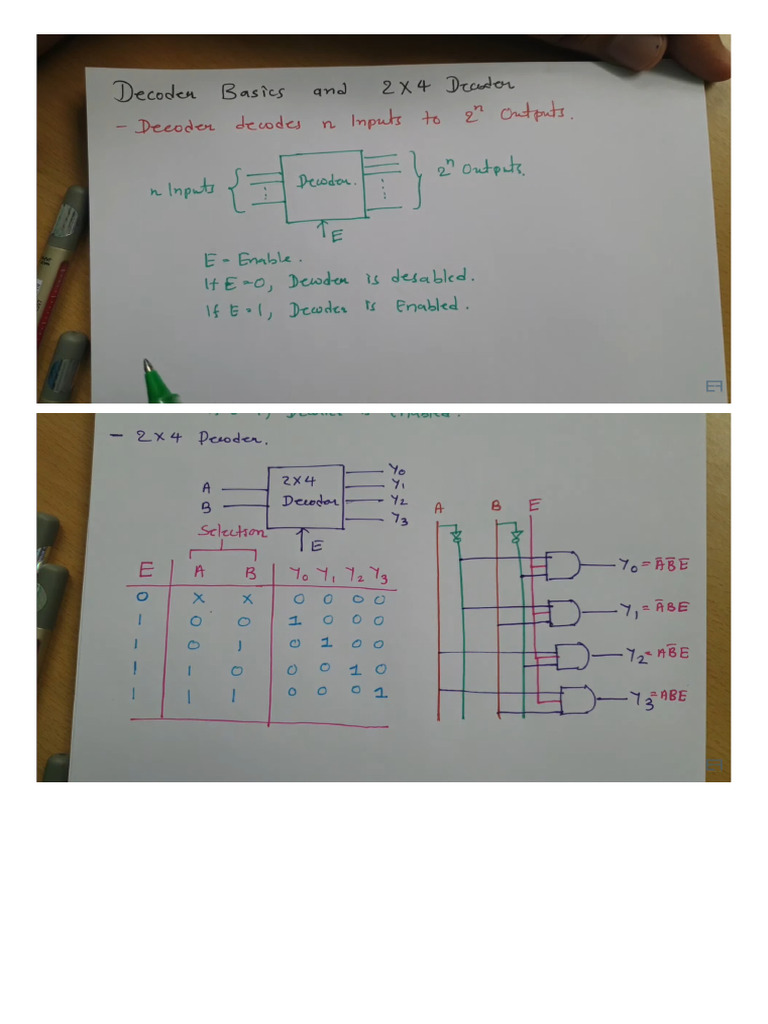 Decoder Basics and 2x4 Decoder
- Decoder decodes n Inputs to 2ⁿ Outputs.
n Inputs
Decoder.
2ⁿ Outputs.
E
E - Enable.
If E=0, Decoder is desabled.
If E=1, Decoder is Enabled.
EF
- 2x4 Decoder.
A
B
2x4
Decoder
Y₀
Y₁
Y₂
Y₃
E
Selection
E A B Y₀ Y₁ Y₂ Y₃
0 x x 0 0 0 0
1 0 0 1 0 0 0
1 0 1 0 1 0 0
1 1 0 0 0 1 0
1 1 1 0 0 0 1
A B E
Y₀ = A̅ B̅ E̅
Y₁ = A̅ B E
Y₂ = A B̅ E
Y₃ = A B E
EF